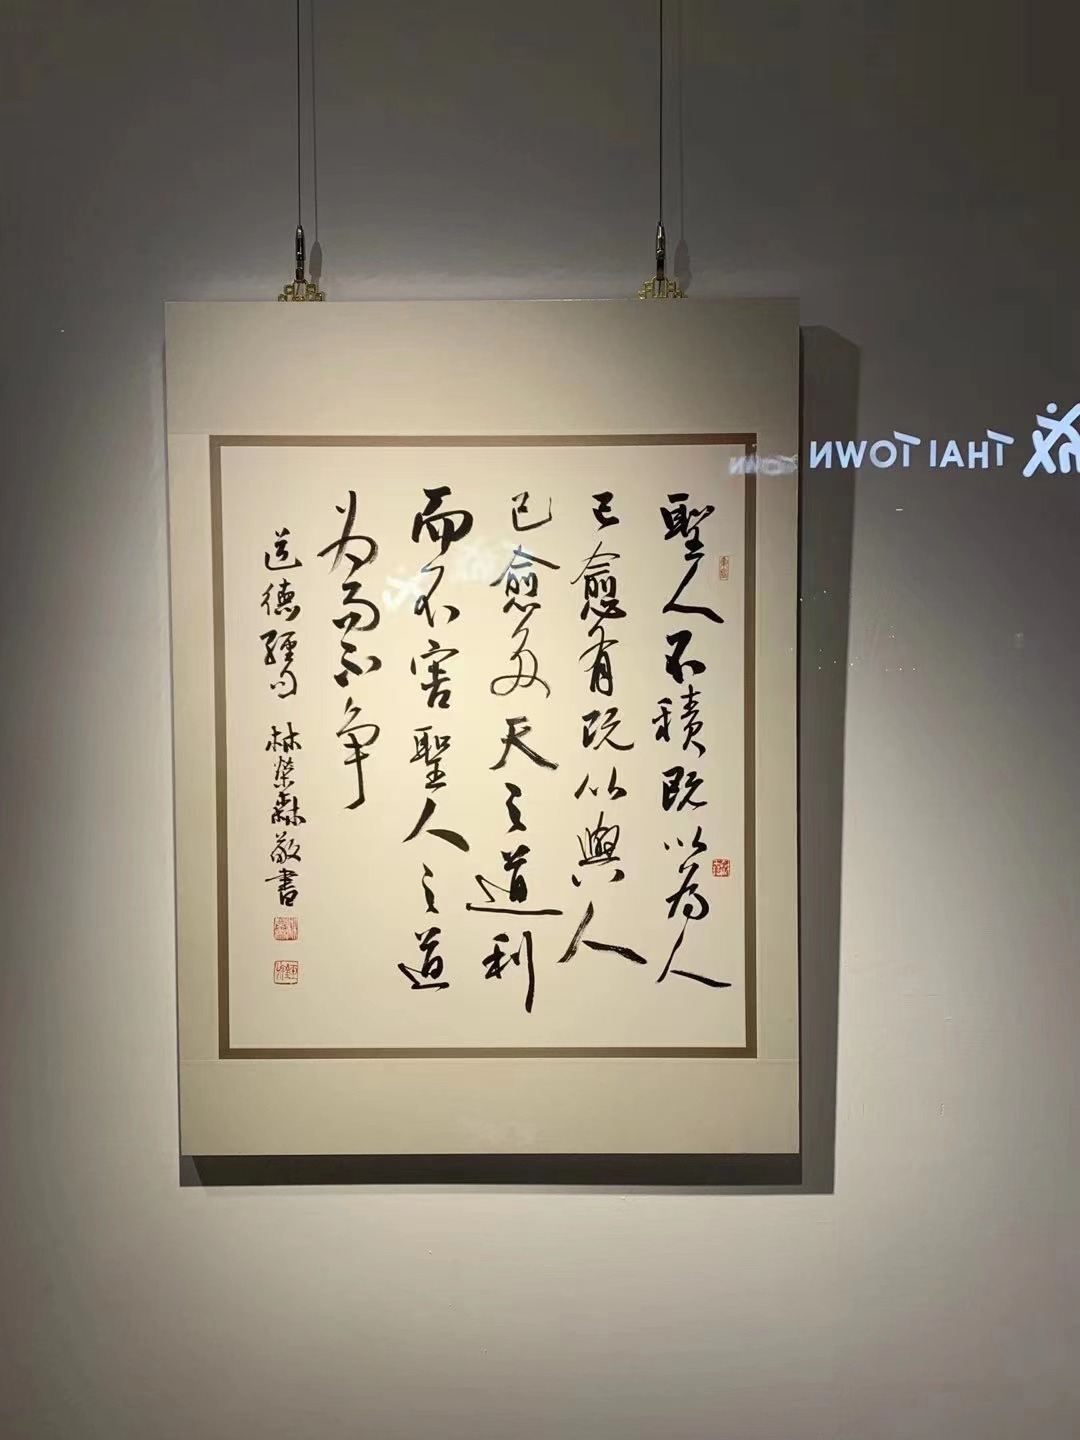 聖人不積既以為人
己愈有既以與人
己愈多天之道利
而不害聖人之道
为而不争
道德經句 林榮森敬書
THAI TOWN